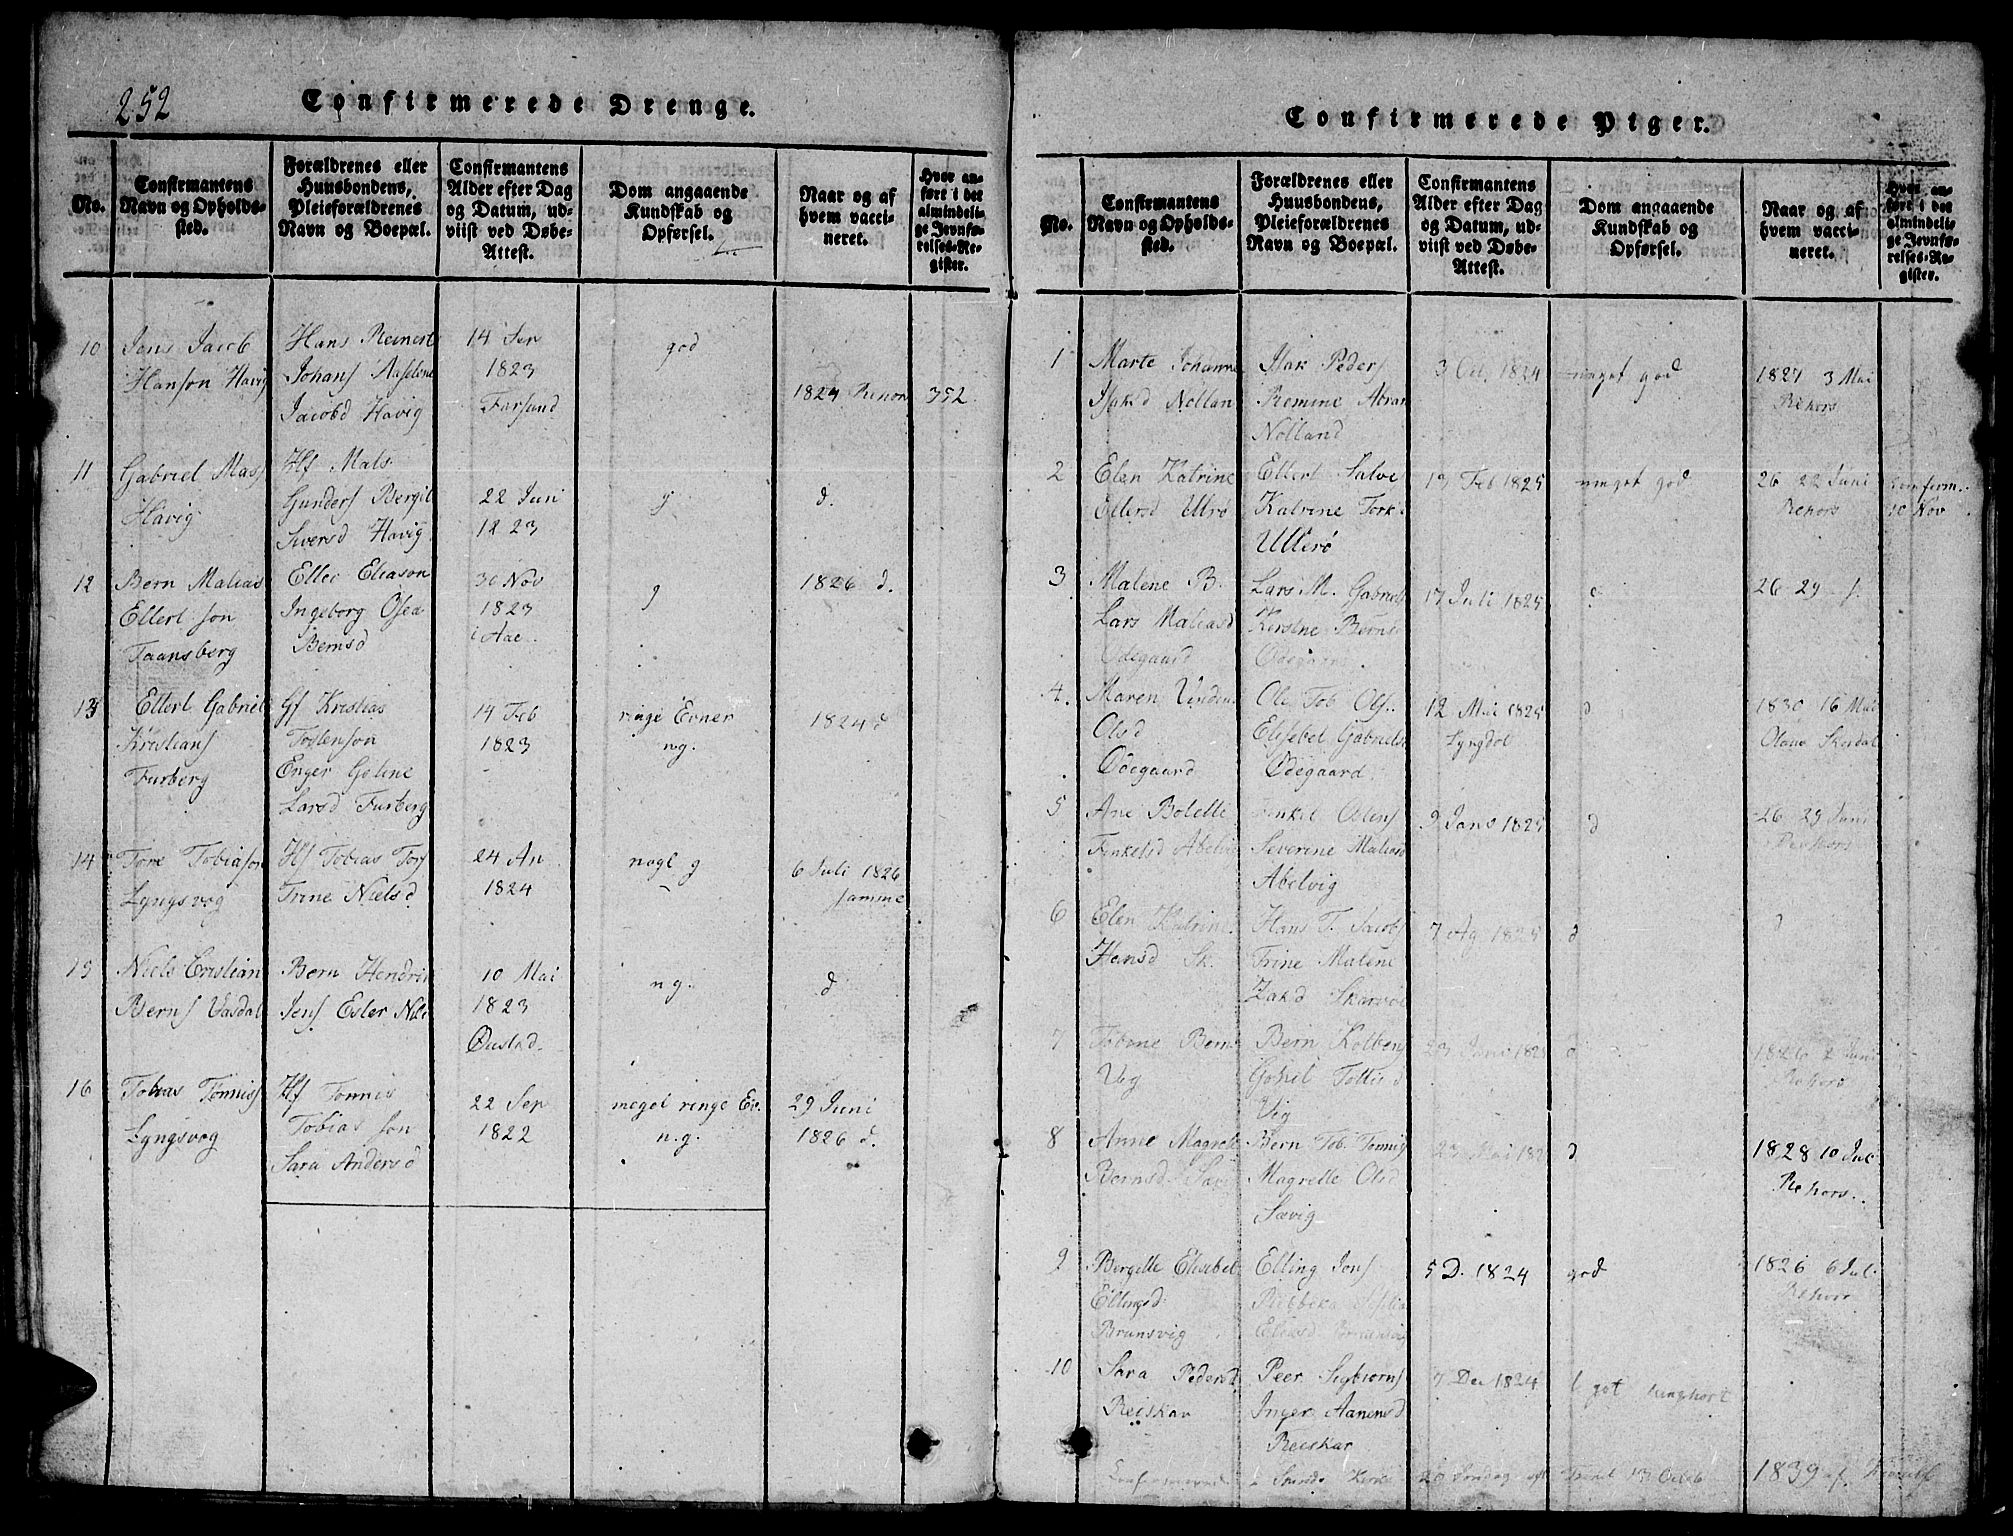 252
Confirmerede Drenge.
No.
Confirmantens
Navn og Opholds-
sted.
Forældrenes eller
Huusbondens,
Pleieforældrenes
Navn og Boepæl.
Confirmantens
Alder efter Dag
og Datum, ud-
viist ved Døbe-
Attest.
Dom angaaende
Kundskab og
Opførsel.
Naar og af
hvem vacci-
neret.
Hvor an-
ført i det
almindeli-
ge Jevnfø-
relses-Re-
gister.
10
Jens Jacob
Hanson Havig
Hans Reinert
Johans Aaselene
Jacobd Havig
14 Sep
1823
Farsund
god
1824 Rehor
352
11
Gabriel Mas
Havig
Hf Mals
Gunders Bergit
Siversd Havig
22 Juni
1823
g
d.
12
Bern Malias
Ellert son
Taansberg
Ellec Eleason
Ingeborg Osea
Bernsd
30 Nov
1823
i Aae
g
1826 d.
13
Ellert Gabriel
Kristians
Furberg
Gf Kristias
Tostenson
Enger Goline
Larsd Furberg
14 Feb
1823
ringe Evner
ng.
1824 d
14
Tore Tobiason
Lyngsvog
Hf Tobias Tors
Trine Nielsd
24 An
1824
nogl g
6 Juli 1826
samme
15
Niels Cristian
Berns Vasdal
Bern Hendrik
Jens Ester Niel
10 Mai
1823
Øustad
ng.
d
16
Tobias Tonnis
Lyngsvog
Hf Tonnis
Tobias son
Sara Andersd
22 Sep
1822
meget ringe Ev.
n.g.
29 Juni
1826 d.
Confirmerede Piger.
No.
Confirmantens
Navn og Opholds-
sted.
Forældrenes eller
Huusbondens,
Pleieforældrenes
Navn og Boepæl.
Confirmantens
Alder efter Dag
og Datum, ud-
viist ved Døbe-
Attest.
Dom angaaende
Kundskab og
Opførsel.
Naar og af
hvem vacci-
neret.
Hvor an-
ført i det
almindeli-
ge Jevnfø-
relses-Re-
gister.
1
Marte Johanne
Isaksd Nolland
Isak Peders
Remine Abra
Nolland
3 Oct. 1824
meget god
1827 3 Mai
Rehors
2
Elen Katrine
Ellersd Ullrø
Ellert Salve
Katrine Tork
Ullerø
19 Feb 1825
meget god
26 22 Juni
Rehors
Confirm.
10 Nov
3
Malene B.
Lars Maliasd
Odegaard
Lars M. Gabriels
Kersine Berns
Odegaard
17 Juli 1825
26 29
4.
Maren
Olsd
Odegaard
Ole Tob Ols
Elisebet Gabriels
Ødegaard
12 Mai 1825
Lyngdol
d
1830 16 Mai
Olaus Skordal
5
Ane Bolette
Tenkelsd Abelvig
Tenkel Ostens
Severine Malias
Abelvig
9 Janu 1825
d
26 29 Juni
Rehors
6
Elen Katrine
Hansd Sk.
Hans T. Jacobs
Trine Malene
Zakd Skarvøi
7 Ag 1825
d
d
7
Tobine Berns
Vig
Bern Kolbens
Gohil Tottisd
Vig
23 Jani 182
d
1826 2 Juni
Rehors
8
Anne Magrete
Bernsd Savig
Bern Tob. Tonnis
Magrette Olsd
Savig
23 Mai 182
d
1828 10 Jul
Rehors.
9
Bergitte Elisebet
Ellingsd
Brunsvig
Elling Jons
Rebbeka
Eliasd Brunsvig
5 D. 1824
god
1826 6 Jul
Rehor
10
Sara Pedersd
Reiskar
Peer Sigbiorns
Inger Aanensd
Reiskar
7 Dec 1824
got
Confirmerede i Spinds Kirke 20 Søndag eft Trinit 13 Octob 1839 af